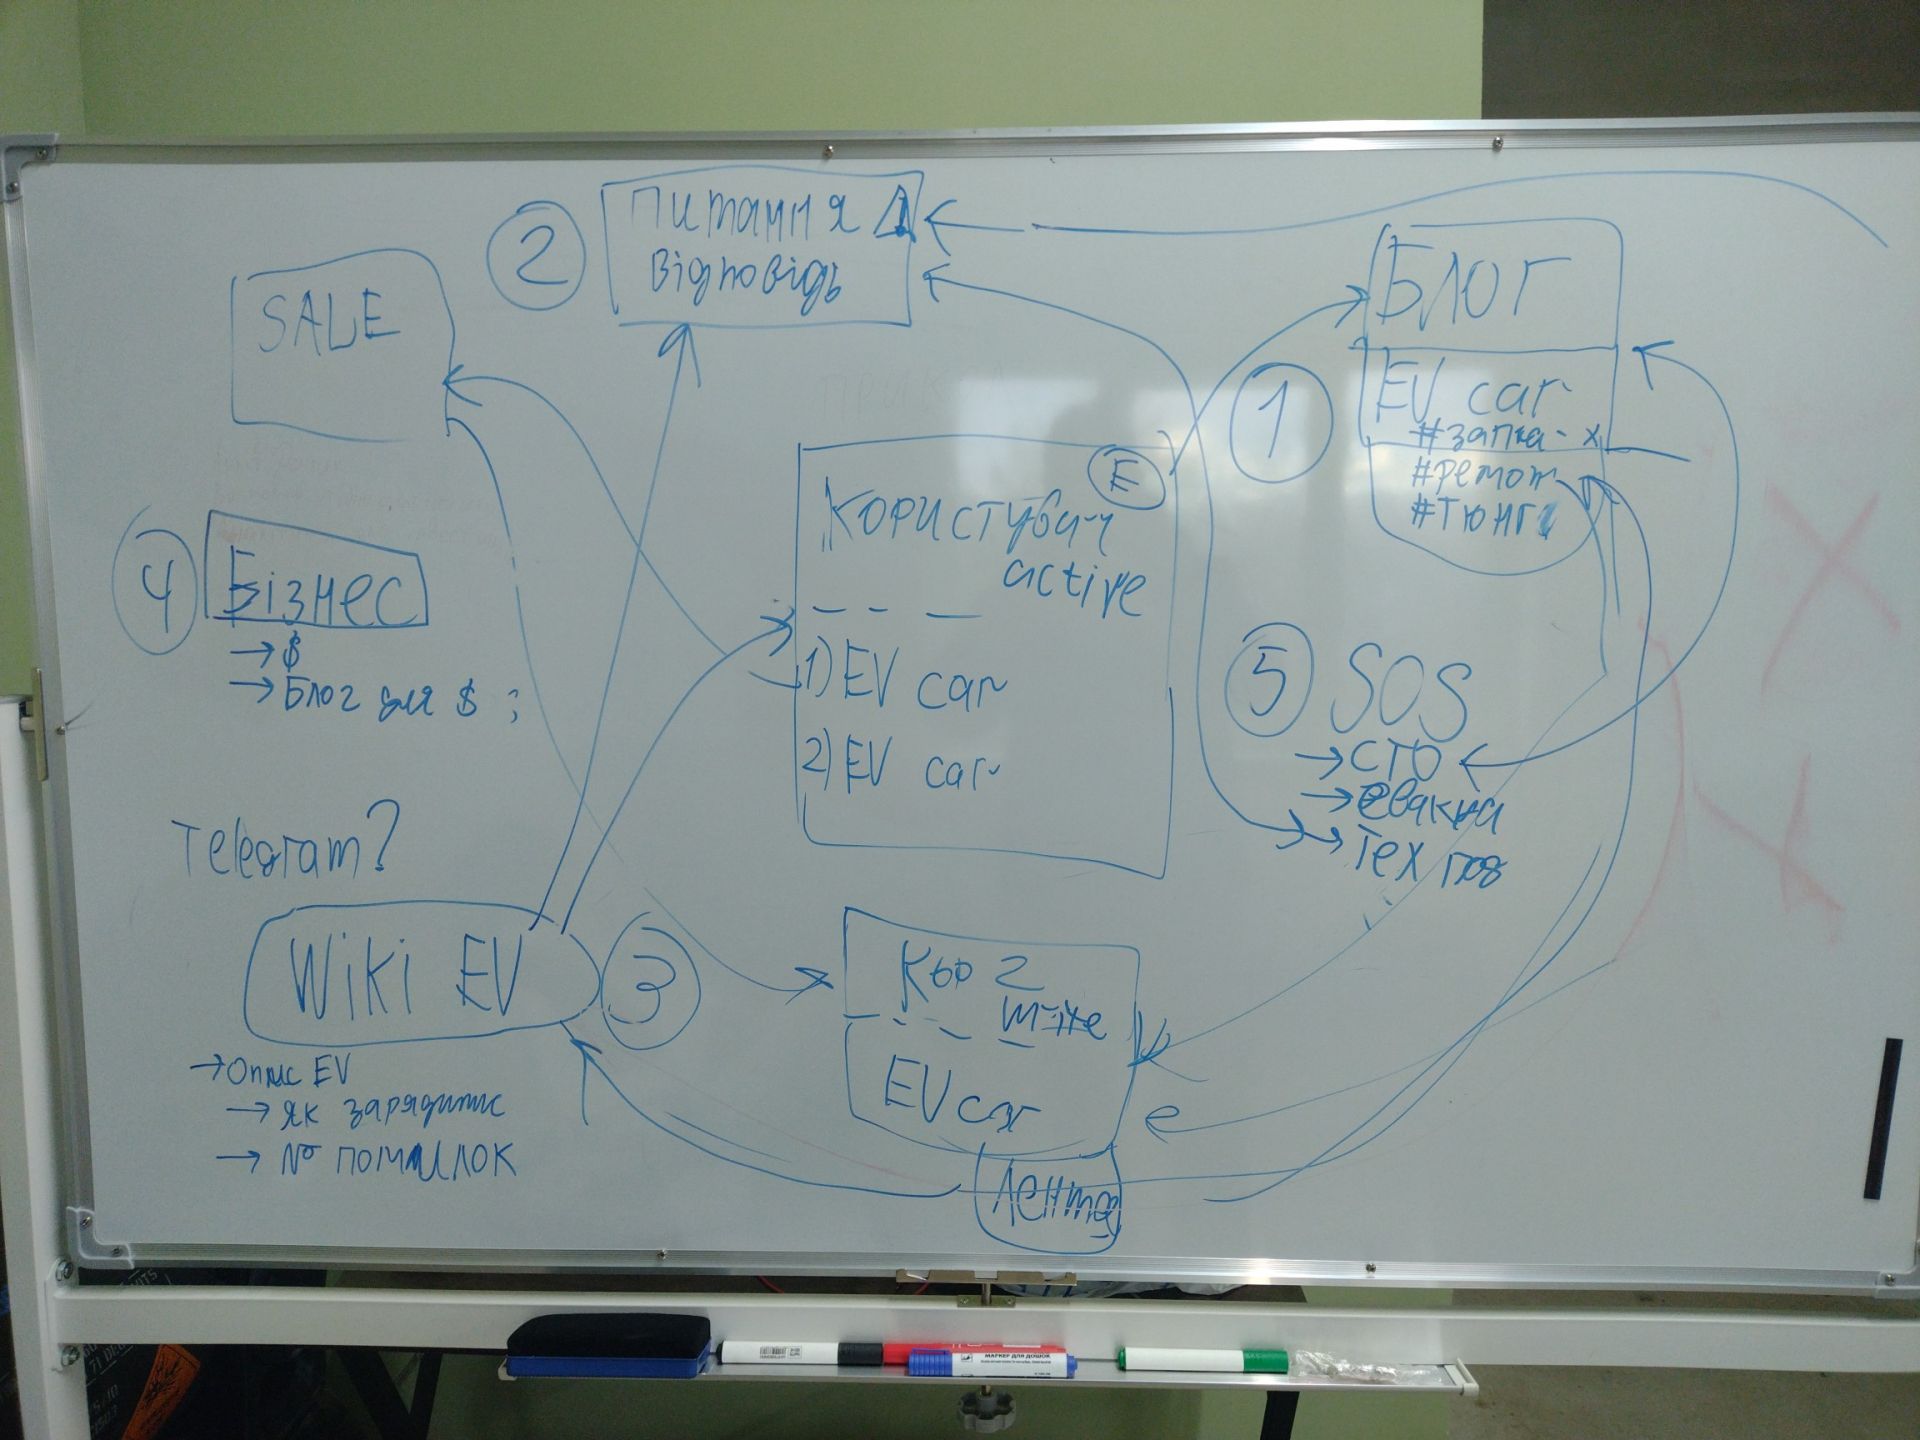 2
Питання
Відповідь
SALE
Блог
EV car
#запча-х
#ремонт
#Тюнг
1
E
Користувач
active
1) EV car
2) EV car
4
Бізнес
→ $
→ Блог для $ ;
5
SOS
→ СТО
→ Тех
Telegram?
Wiki EV
3
→ Опис EV
→ як зарядитис
→ № помилок
2
EV car
Лента
МАРКЕР ДЛЯ ДОШОК